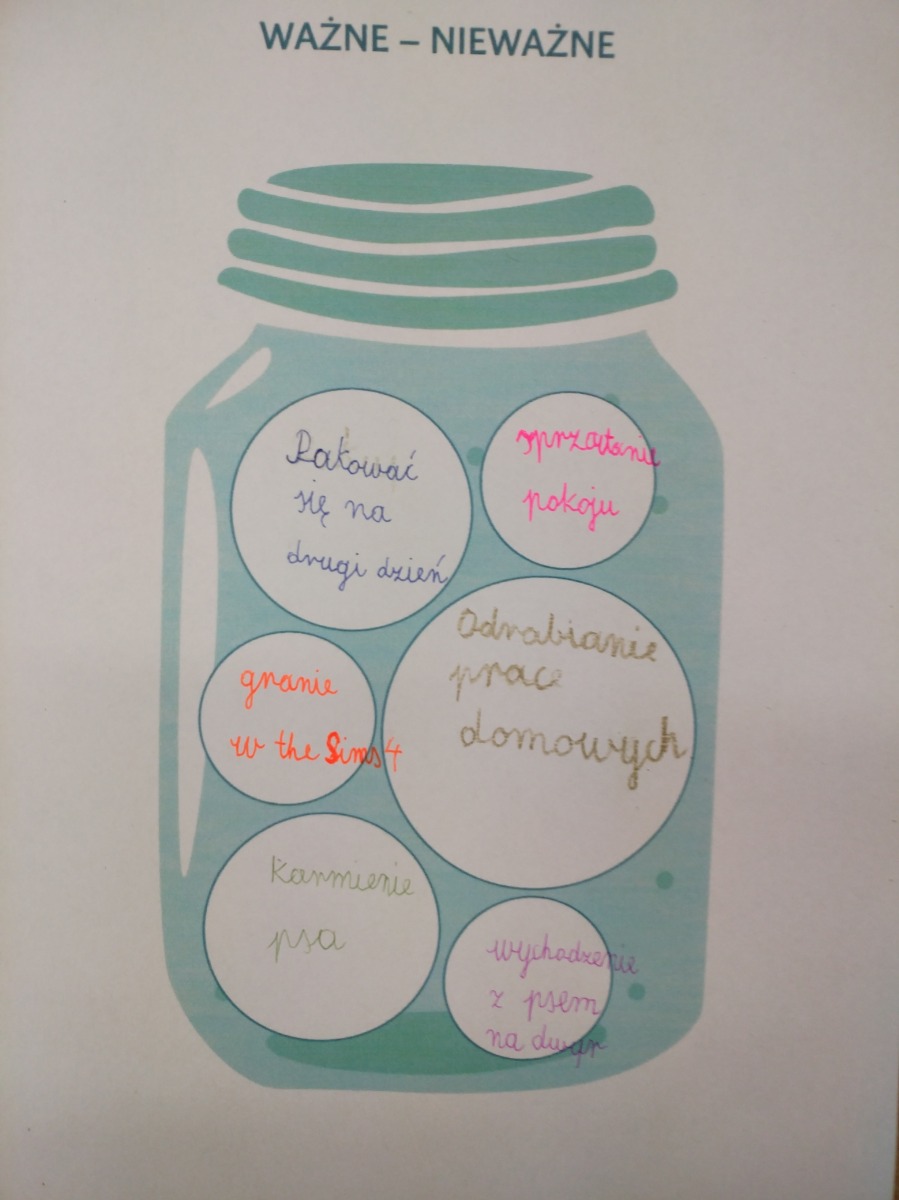 WAŻNE – NIEWAŻNE
Pakować
się na
drugi dzień
sprzątanie
pokoju
Odrabianie
prace
domowych
granie
w the Sims 4
Karmienie
psa
wychodzenie
z psem
na dwór